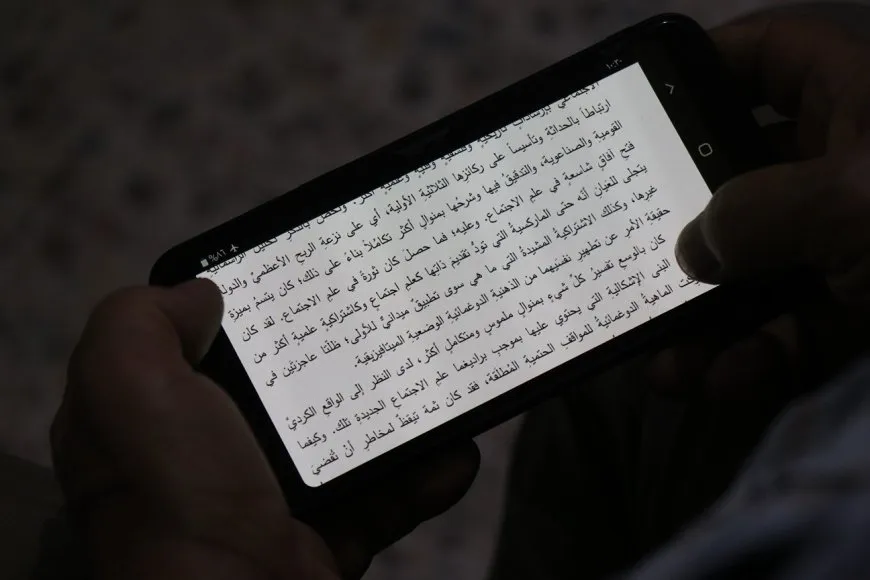 ١٠:٣٠
٪٨٦
الاجتماعي بإرشادات تاريخية وفلسفية وفنية وعلمية أكثر. ونخص بالذكر تحليل الرأسمالية
ارتباطاً بالحداثة وتأسيساً على ركائزها الثلاثية الأولية، أي على نزعة الربح الأعظمي والدولة
القومية والصناعوية، والتدقيق فيها وشرحها بمنوال أكثر تكاملاً بناءً على ذلك؛ كان يتسم بميزة
فتح آفاق شاسعة في علم الاجتماع. وعليه؛ فما حصل كان ثورة في علم الاجتماع. لقد كان
يتجلى للعيان أنه حتى الماركسية التي تود تقديم ذاتها كعلم اجتماع وكاشتراكية علمية أكثر من
غيرها، وكذلك الاشتراكية المشيدة التي ما هي سوى تطبيق ميداني للأولى؛ ظلتا عاجزتين في
حقيقة الأمر عن تطهير نفسيهما من الذهنية الدوغمائية الوضعية الميتافيزيقية.
كان بالوسع تفسير كل شيء بمنوال ملموس ومتكامل أكثر، لدى النظر إلى الواقع الكردي
البنى الإشكالية التي يحتوي عليها بموجب براديغما علم الاجتماع الجديدة تلك. وكيفما
الماهية الدوغمائية للمواقف الحتمية المطلقة، فقد كان ثمة تيقظ لمخاطر أن تفضي